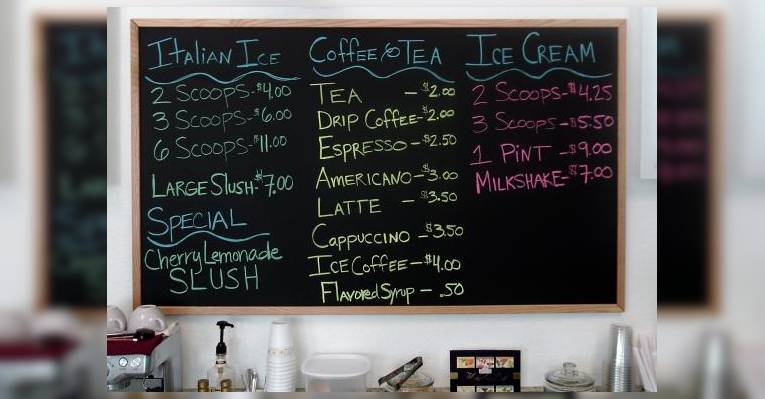 Italian Ice
2 Scoops-$4.00
3 Scoops-$6.00
6 Scoops-$11.00
Large Slush-$7.00
Special
Cherry Lemonade
SLUSH
Coffee & Tea
Tea - $2.00
Drip Coffee-$2.00
Espresso-$2.50
Americano-$3.00
Latte - $3.50
Cappuccino -$3.50
Ice Coffee-$4.00
Flavored Syrup - .50
Ice Cream
2 Scoops-$4.25
3 Scoops-$5.50
1 Pint -$9.00
Milkshake-$7.00